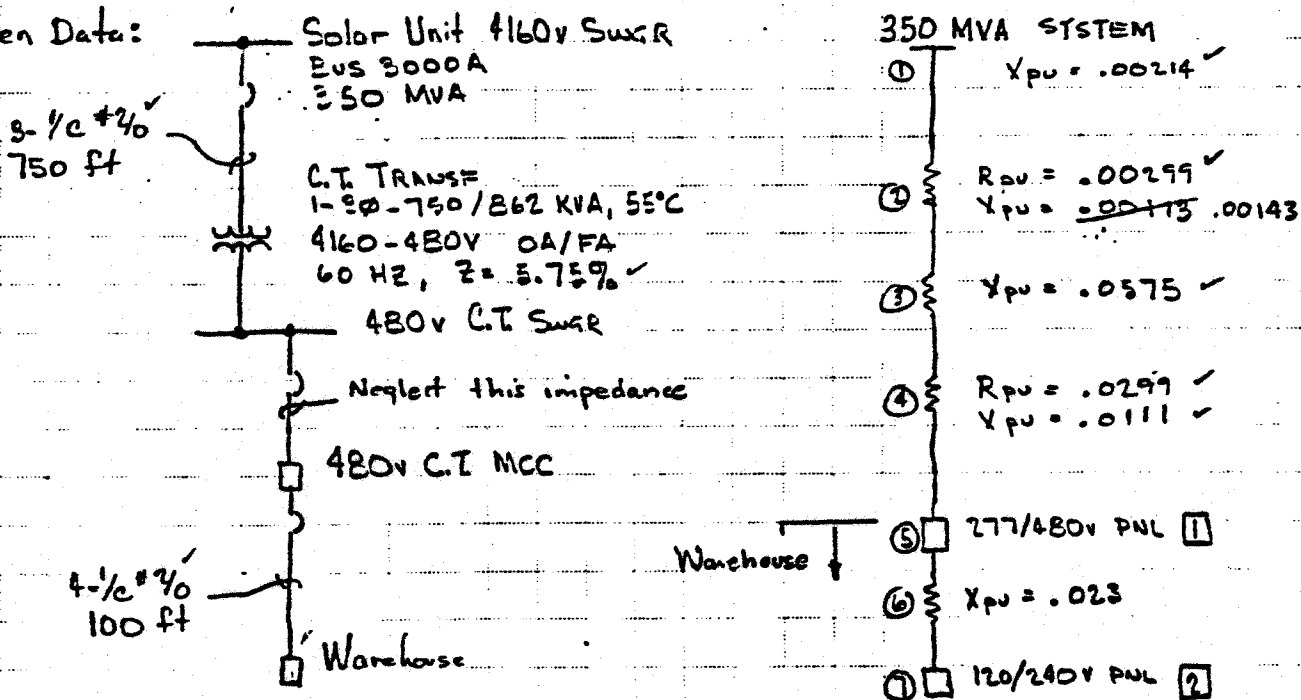 en Data:
Solar Unit 4160v SWGR
BUS 3000A
350 MVA
3-1/c #2/0 ✓
750 ft
C.T. TRANSF
1-3ø-750/862 KVA, 55°C
4160-480V OA/FA
60 HZ, Z= 5.75% ✓
480v C.T. SWGR
Neglect this impedance
480v C.T MCC
4-1/c #2/0 ✓
100 ft
Warehouse
350 MVA SYSTEM
① Xpu = .00214 ✓
② Rpu = .00299 ✓
Xpu = .00143
③ Xpu = .0575 ✓
④ Rpu = .0299 ✓
Xpu = .0111 ✓
⑤ 277/480v PNL 1
Warehouse
⑥ Xpu = .023
⑦ 120/240V PNL 2